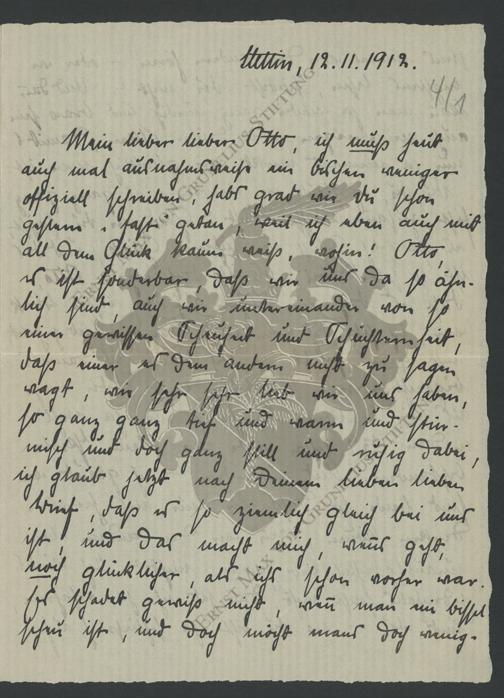 Stettin, 12.11.1912.
4/1
Mein lieber lieber Otto, ich muß heut
auch mal ausnahmsweise ein bischen weniger
offiziell schreiben, habs grad wie Du schon
gestern fast getan, weil ich eben auch mit
all dem Glück kaum weiß, wohin! Otto,
es ist sonderbar, daß wir uns da so ähn-
lich sind, auch wir untereinander von so
einer gewissen Scheuheit und Schüchternheit,
daß einer es dem andern nicht zu sagen
wagt, wie sehr sehr lieb wir uns haben,
so ganz ganz tief und warm und stür-
misch und doch ganz still und ruhig dabei,
ich glaub jetzt nach Deinem lieben lieben
Brief, daß es so ziemlich gleich bei uns
ist, und das macht mich, wenns geht,
noch glücklicher, als ichs schon vorher war.
Es schadet gewiß nicht, wenn man ein bissel
scheu ist, und doch möcht mans doch wenig-
ERNST MAX VON GRUNELIUS-STIFTUNG